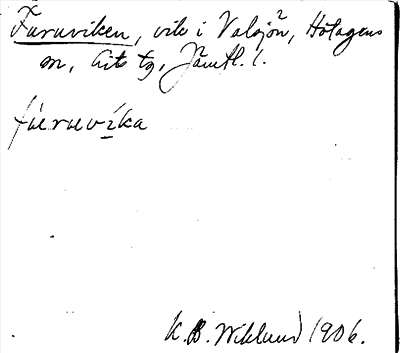 Furuviken, vik i Valsjön, Hotagens
sn, Lits tg, Jämtl. l.
fúeruvíka
K.B. Wiklund 1906.